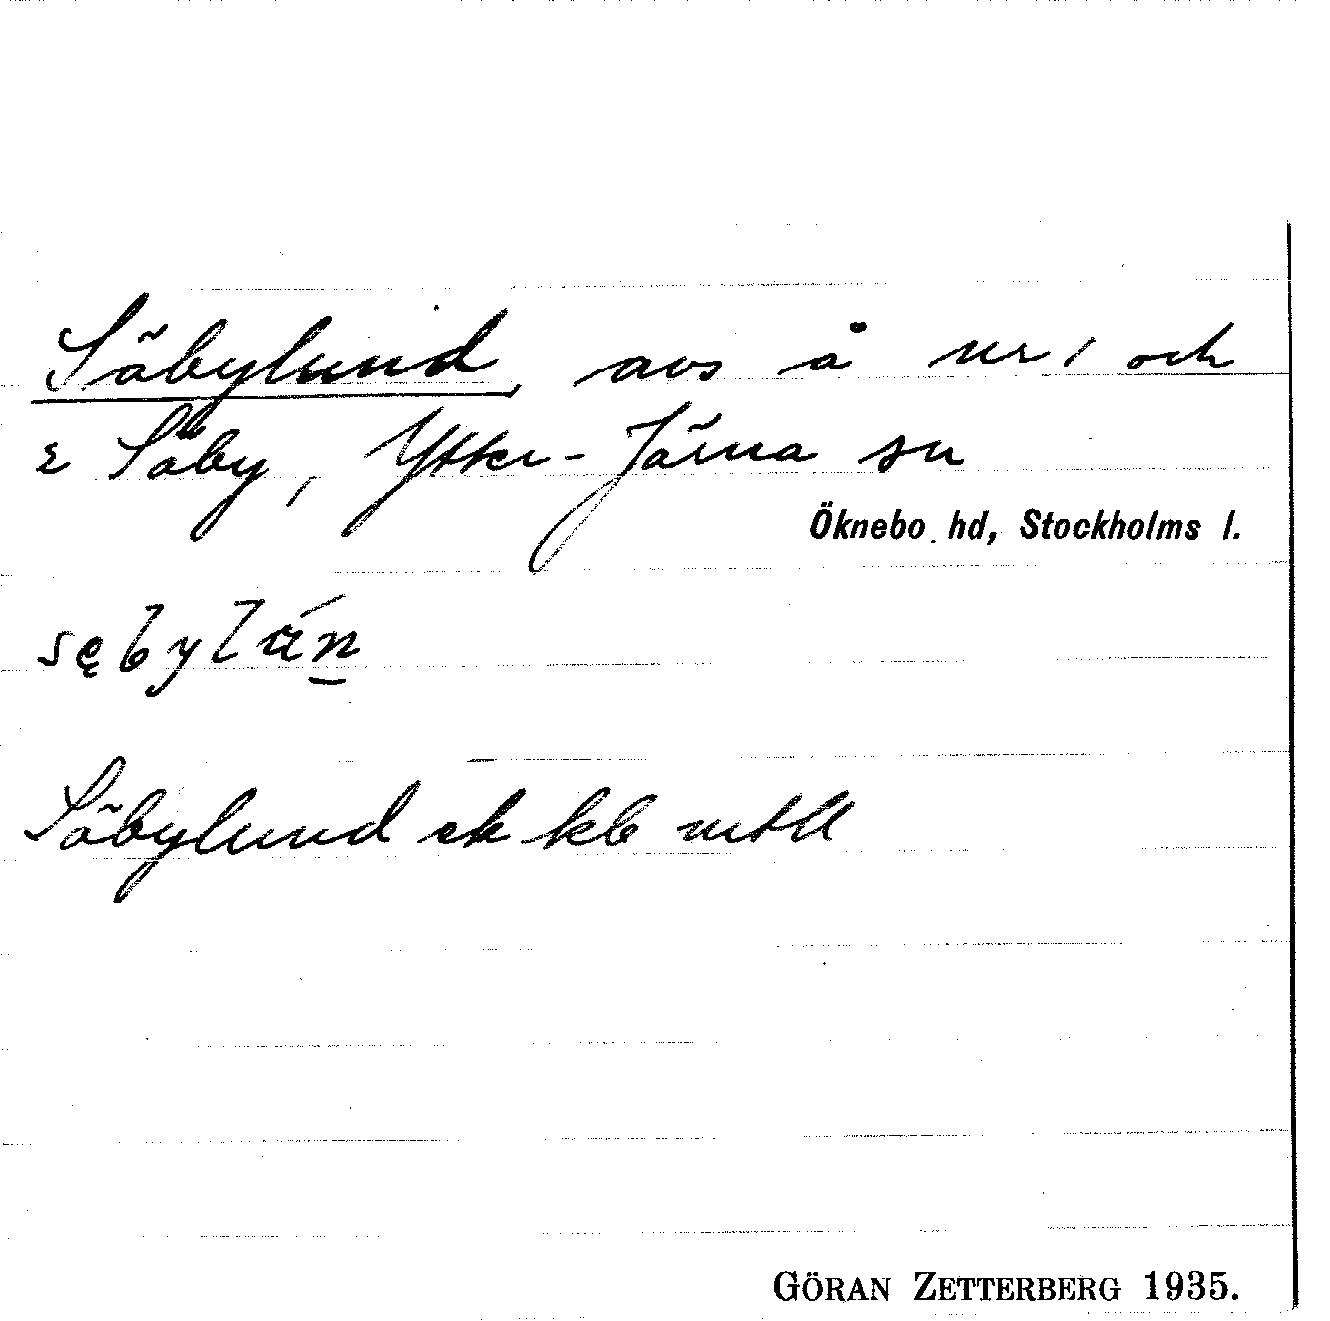 Säbylund, avs å nr 1 och
2 Säby, Ytter-Järna sn
Öknebo hd, Stockholms l.
sębylún̠
Säbylund ek kb mtll
GÖRAN ZETTERBERG 1935.